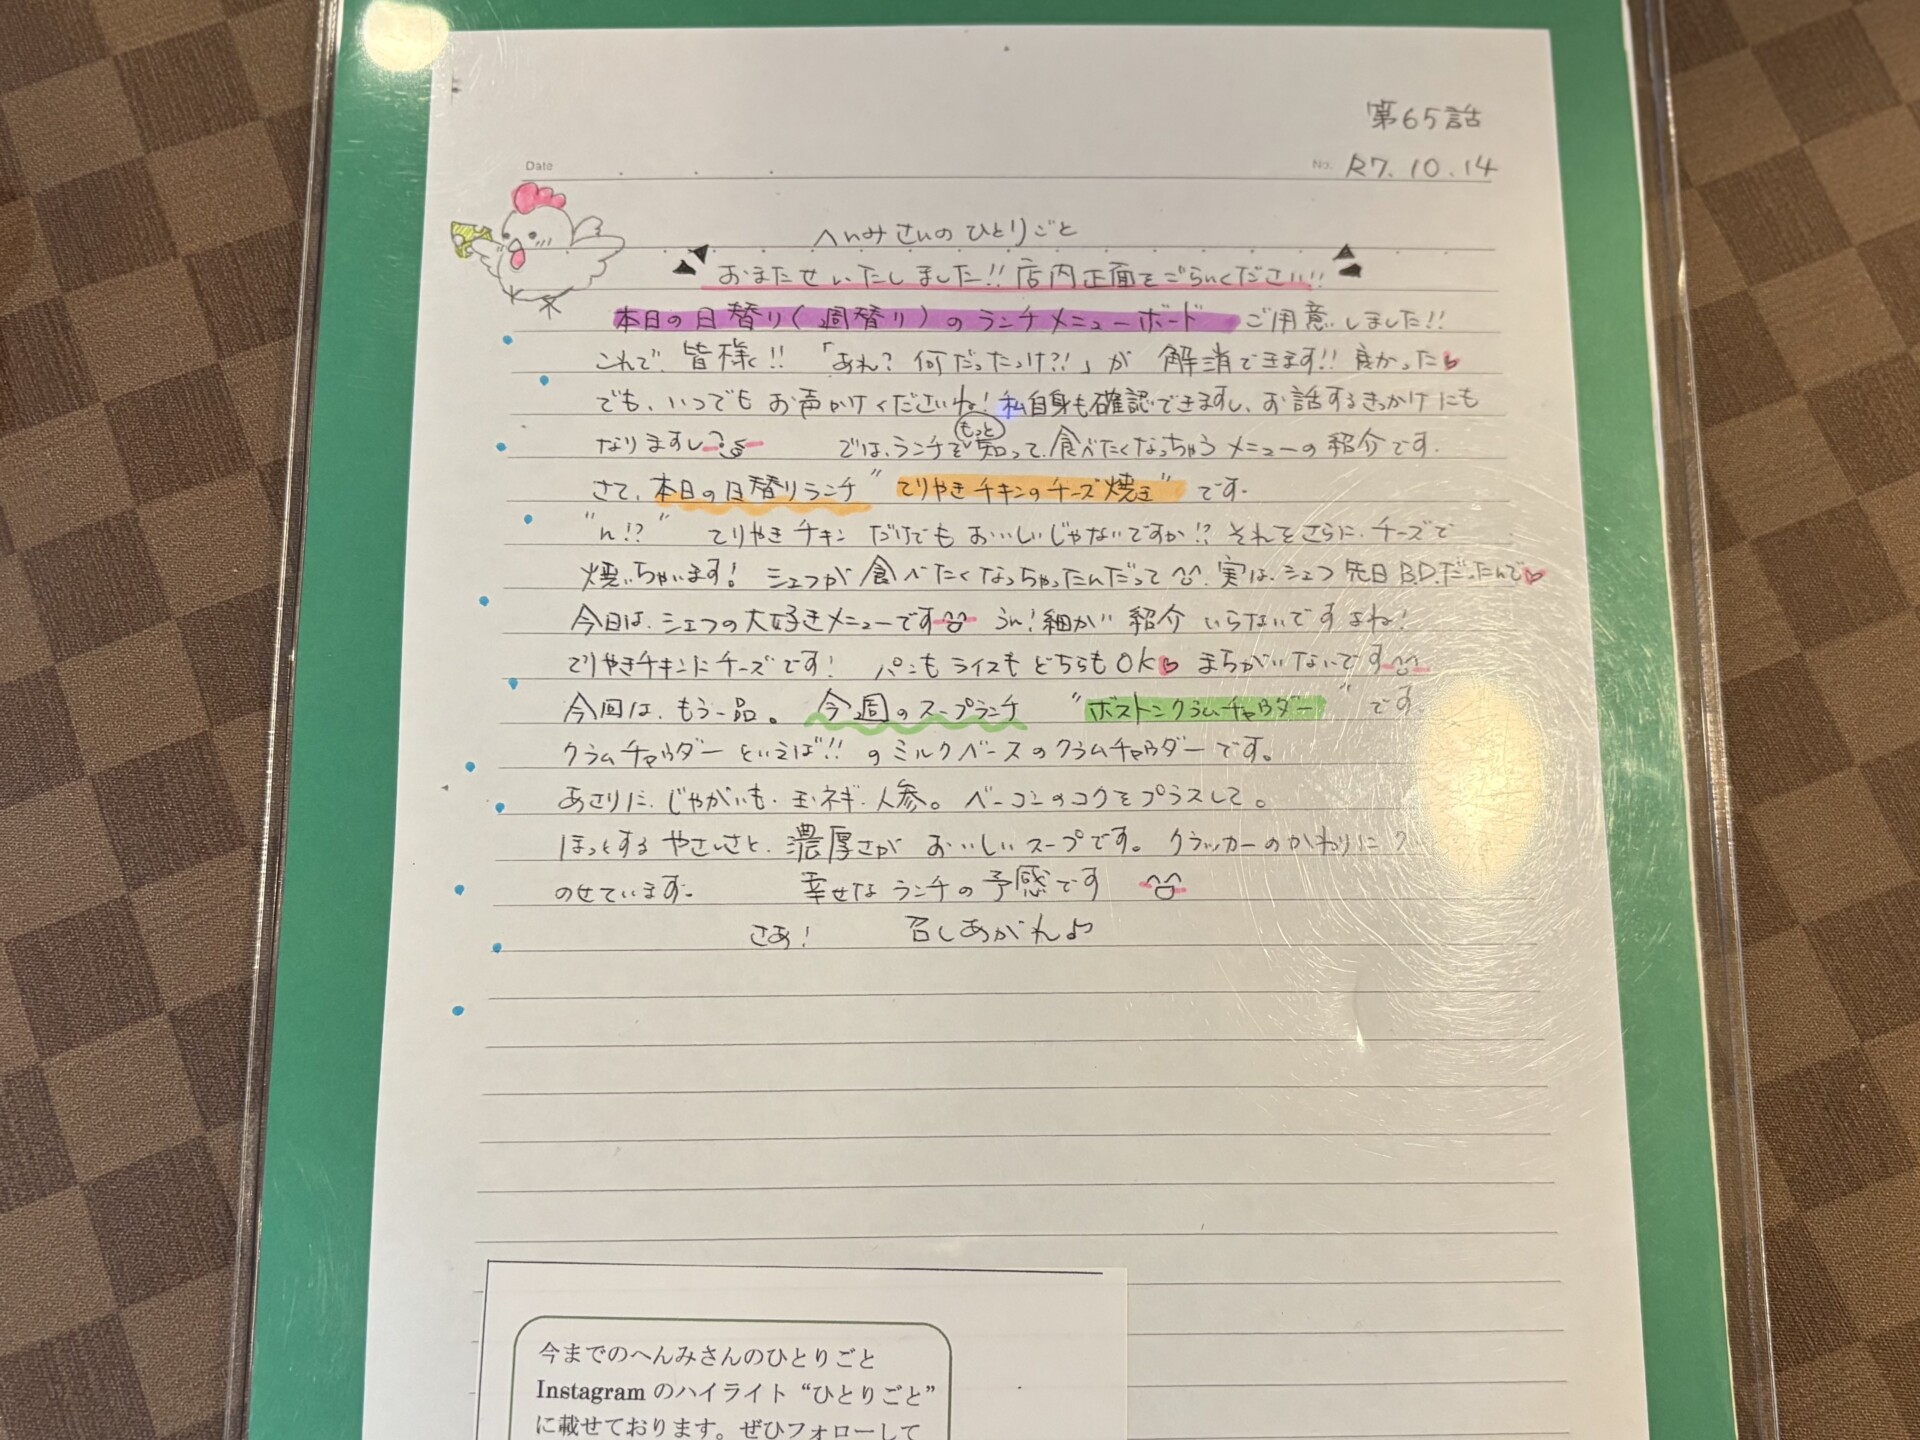 第65話
Date
No. R7.10.14
へんみさんのひとりごと
おまたせいたしました!! 店内正面をごらんください!!
本日の日替り(週替り)のランチメニューボード ご用意しました!!
これで、皆様!! 「あれ?何だったっけ?!」が 解消できます!! 良かった♡
でも、いつでも お声がけくださいね! 私自身も確認できますし、お話するきっかけにも
なりますし? では、ランチをもっと知って、食べたくなっちゃうメニューの紹介です。
さて、本日の日替りランチ "てりやきチキンのチーズ焼き" です。
"ん!?" てりやきチキン だけでも おいしいじゃないですか!? それをさらに、チーズで
焼いちゃいます! シェフが食べたくなっちゃったんだって^^. 実は、シェフ先日B.D.だったんで♡
今日は、シェフの大好きメニューです^^ うん!細かい 紹介 いらないですよね!
てりやきチキンにチーズです! パンもライスもどちらもOK♡ まちがいないです^^
今回は、もう一品。 今週のスープランチ "ボストンクラムチャウダー" です。
クラムチャウダーといえば!! のミルクベースのクラムチャウダーです。
あさりに、じゃがいも・玉ネギ・人参。ベーコンのコクをプラスして。
ほっとするやさしさと、濃厚さが おいしいスープです。 クラッカーのかわりに
のせています。 幸せなランチの予感です ^^
さあ! 召しあがれ♪
今までのへんみさんのひとりごと
Instagramのハイライト“ひとりごと”
に載せております。ぜひフォローして